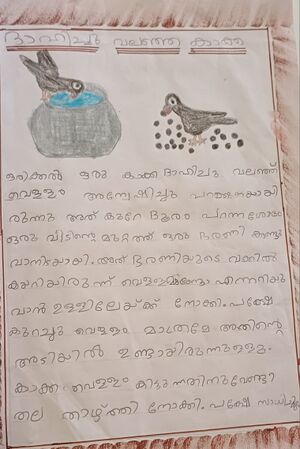 ദാഹിച്ചു വലഞ്ഞ കാക്ക
ഒരിക്കൽ ഒരു കാക്ക ദാഹിച്ചു വലഞ്ഞ്
വെള്ളം അന്വേഷിച്ചു പറക്കുകയായി
രുന്നു അത് കുറേ ദൂരം പറന്ന ശേഷം
ഒരു വീടിന്റെ മുറ്റത്ത് ഒരു ഭരണി കണ്ടു
വാനിടയായി. അത് ഭരണിയുടെ വക്കിൽ
കയറിയിരുന്ന് വെള്ളമുണ്ടോ എന്നറിയു
വാൻ ഉള്ളിലേയ്ക്ക് നോക്കി. പക്ഷേ
കുറച്ചു വെള്ളം മാത്രമേ അതിന്റെ
അടിയിൽ ഉണ്ടായിരുന്നുള്ളു.
കാക്ക വെള്ളം കിട്ടുന്നതിനുവേണ്ടി
തല താഴ്ത്തി നോക്കി. പക്ഷേ